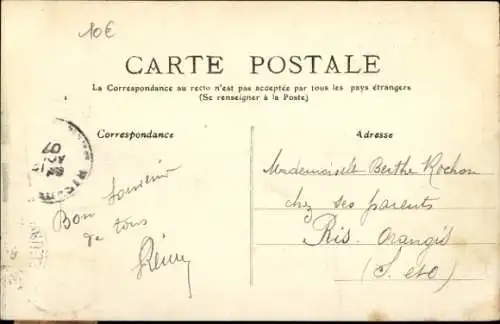 10€
CARTE POSTALE
La Correspondance au recto n'est pas acceptée par tous les pays étrangers
(Se renseigner à la Poste)
Correspondance
Adresse
Bon Souvenir
de tous
Rémy
Mademoiselle Berthe Rochon
chez ses parents
Ris. Orangis
(S. et O)